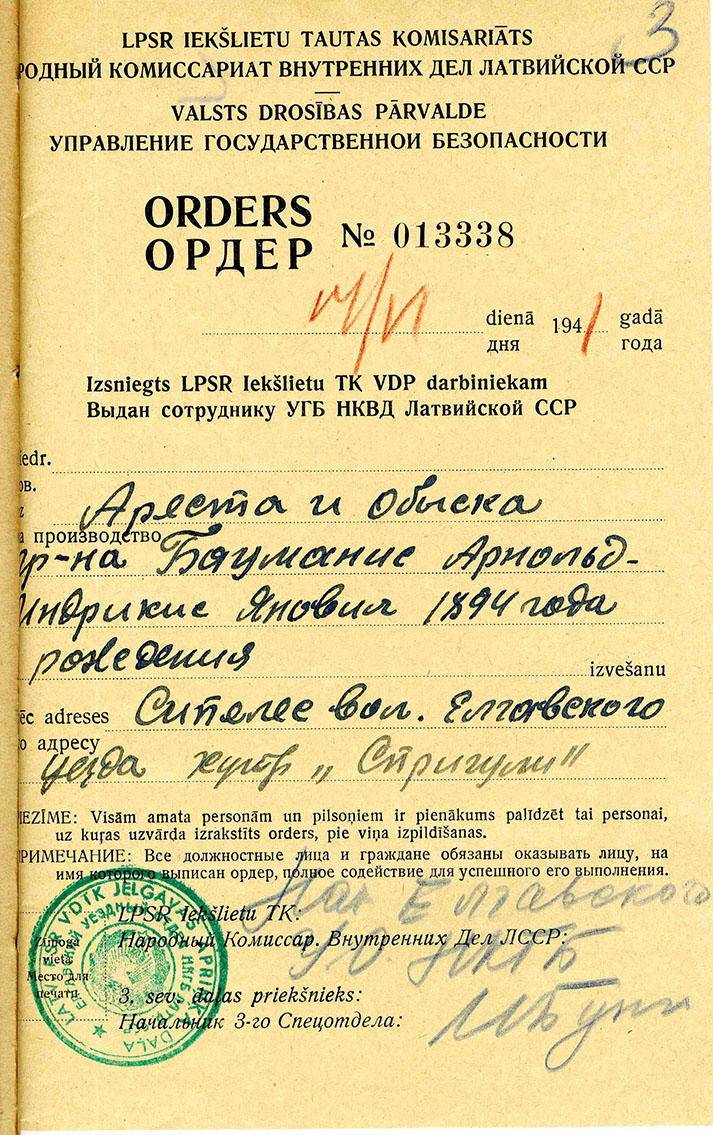 3
LPSR IEKŠLIETU TAUTAS KOMISARIĀTS
РОДНЫЙ КОМИССАРИАТ ВНУТРЕННИХ ДЕЛ ЛАТВИЙСКОЙ ССР
VALSTS DROSĪBAS PĀRVALDE
УПРАВЛЕНИЕ ГОСУДАРСТВЕННОИ БЕЗОПАСНОСТИ
ORDERS
ОРДЕР
№ 013338
14/VI dienā 1941 gadā
дня года
Izsniegts LPSR Iekšlietu TK VDP darbiniekam
Выдан сотруднику УГБ НКВД Латвийской ССР
iedr.
ов.
Ареста и Обыска
а производство
гр-на Бауманис Арнольд-
Индрикис Янович 1894 года
рождения
izvešanu
ēc adreses Сипелес вол. Елгавского
о адресу
уезда хутор „Стригули"
IEZĪME: Visām amata personām un pilsoņiem ir pienākums palīdzēt tai personai,
uz kuŗas uzvārda izrakstīts orders, pie viņa izpildīšanas.
РИМЕЧАНИЕ: Все должностные лица и граждане обязаны оказывать лицу, на
имя которого выписан ордер, полное содействие для успешного его выполнения.
LPSR Iekšlietu TK:
Нач Елгавского
Народный Комиссар. Внутренних Дел ЛССР:
УО НКГБ
Zīmoga
vieta
Место для
печати
3. sev. daļas priekšnieks:
Начальник 3-го Спецотдела:
LATV. PSR VDTK JELGAVAS APRIŅĶA DAĻA